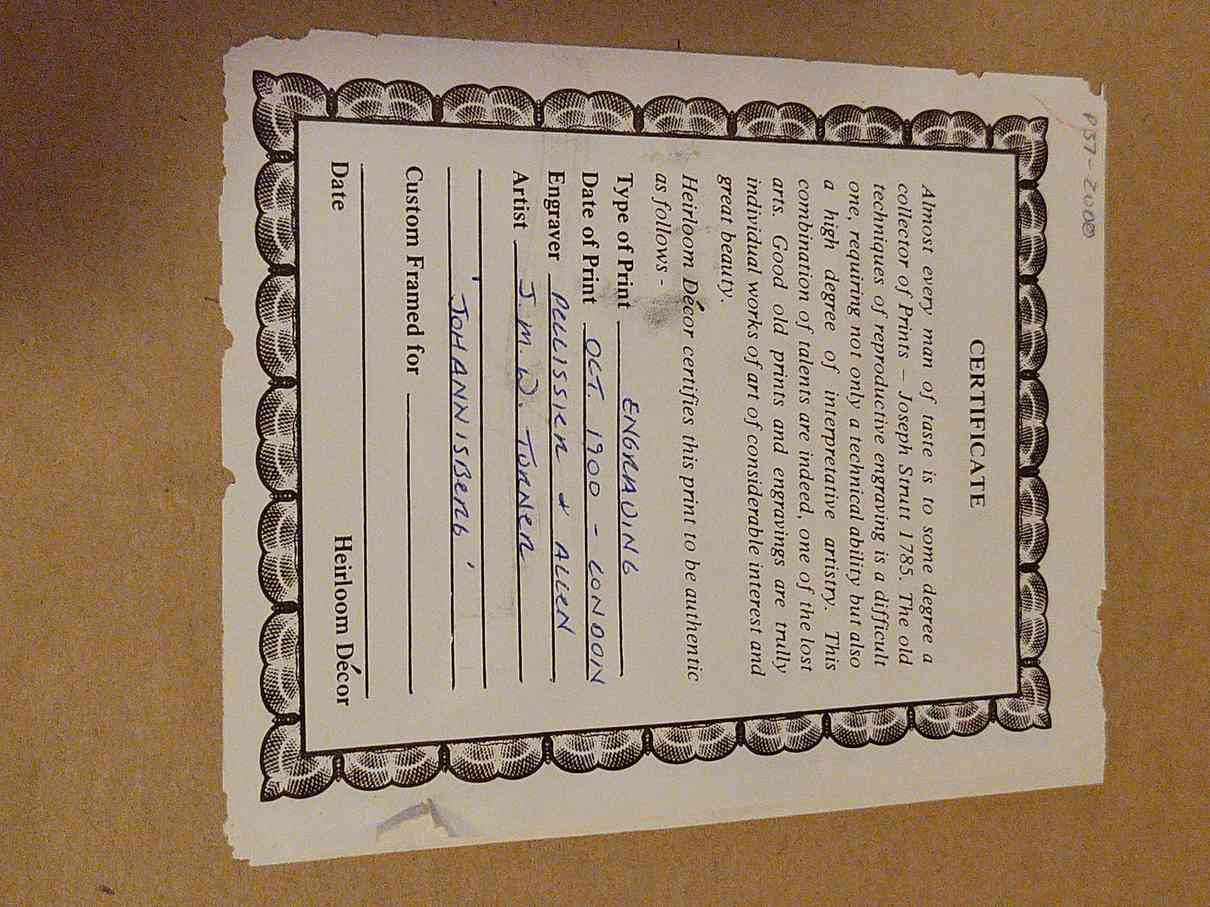 P37-2000
CERTIFICATE
Almost every man of taste is to some degree a
collector of Prints – Joseph Strutt 1785. The old
techniques of reproductive engraving is a difficult
one, requiring not only a technical ability but also
a high degree of interpretative artistry. This
combination of talents are indeed, one of the lost
arts. Good old prints and engravings are trully
individual works of art of considerable interest and
great beauty.
Heirloom Décor certifies this print to be authentic
as follows -
Type of Print ENGRAVING
Date of Print OCT. 1900 - LONDON
Engraver PELLISSIER & ALLEN
Artist J. M. W. TURNER
'JOHANNISBERG'
Custom Framed for
Date Heirloom Décor